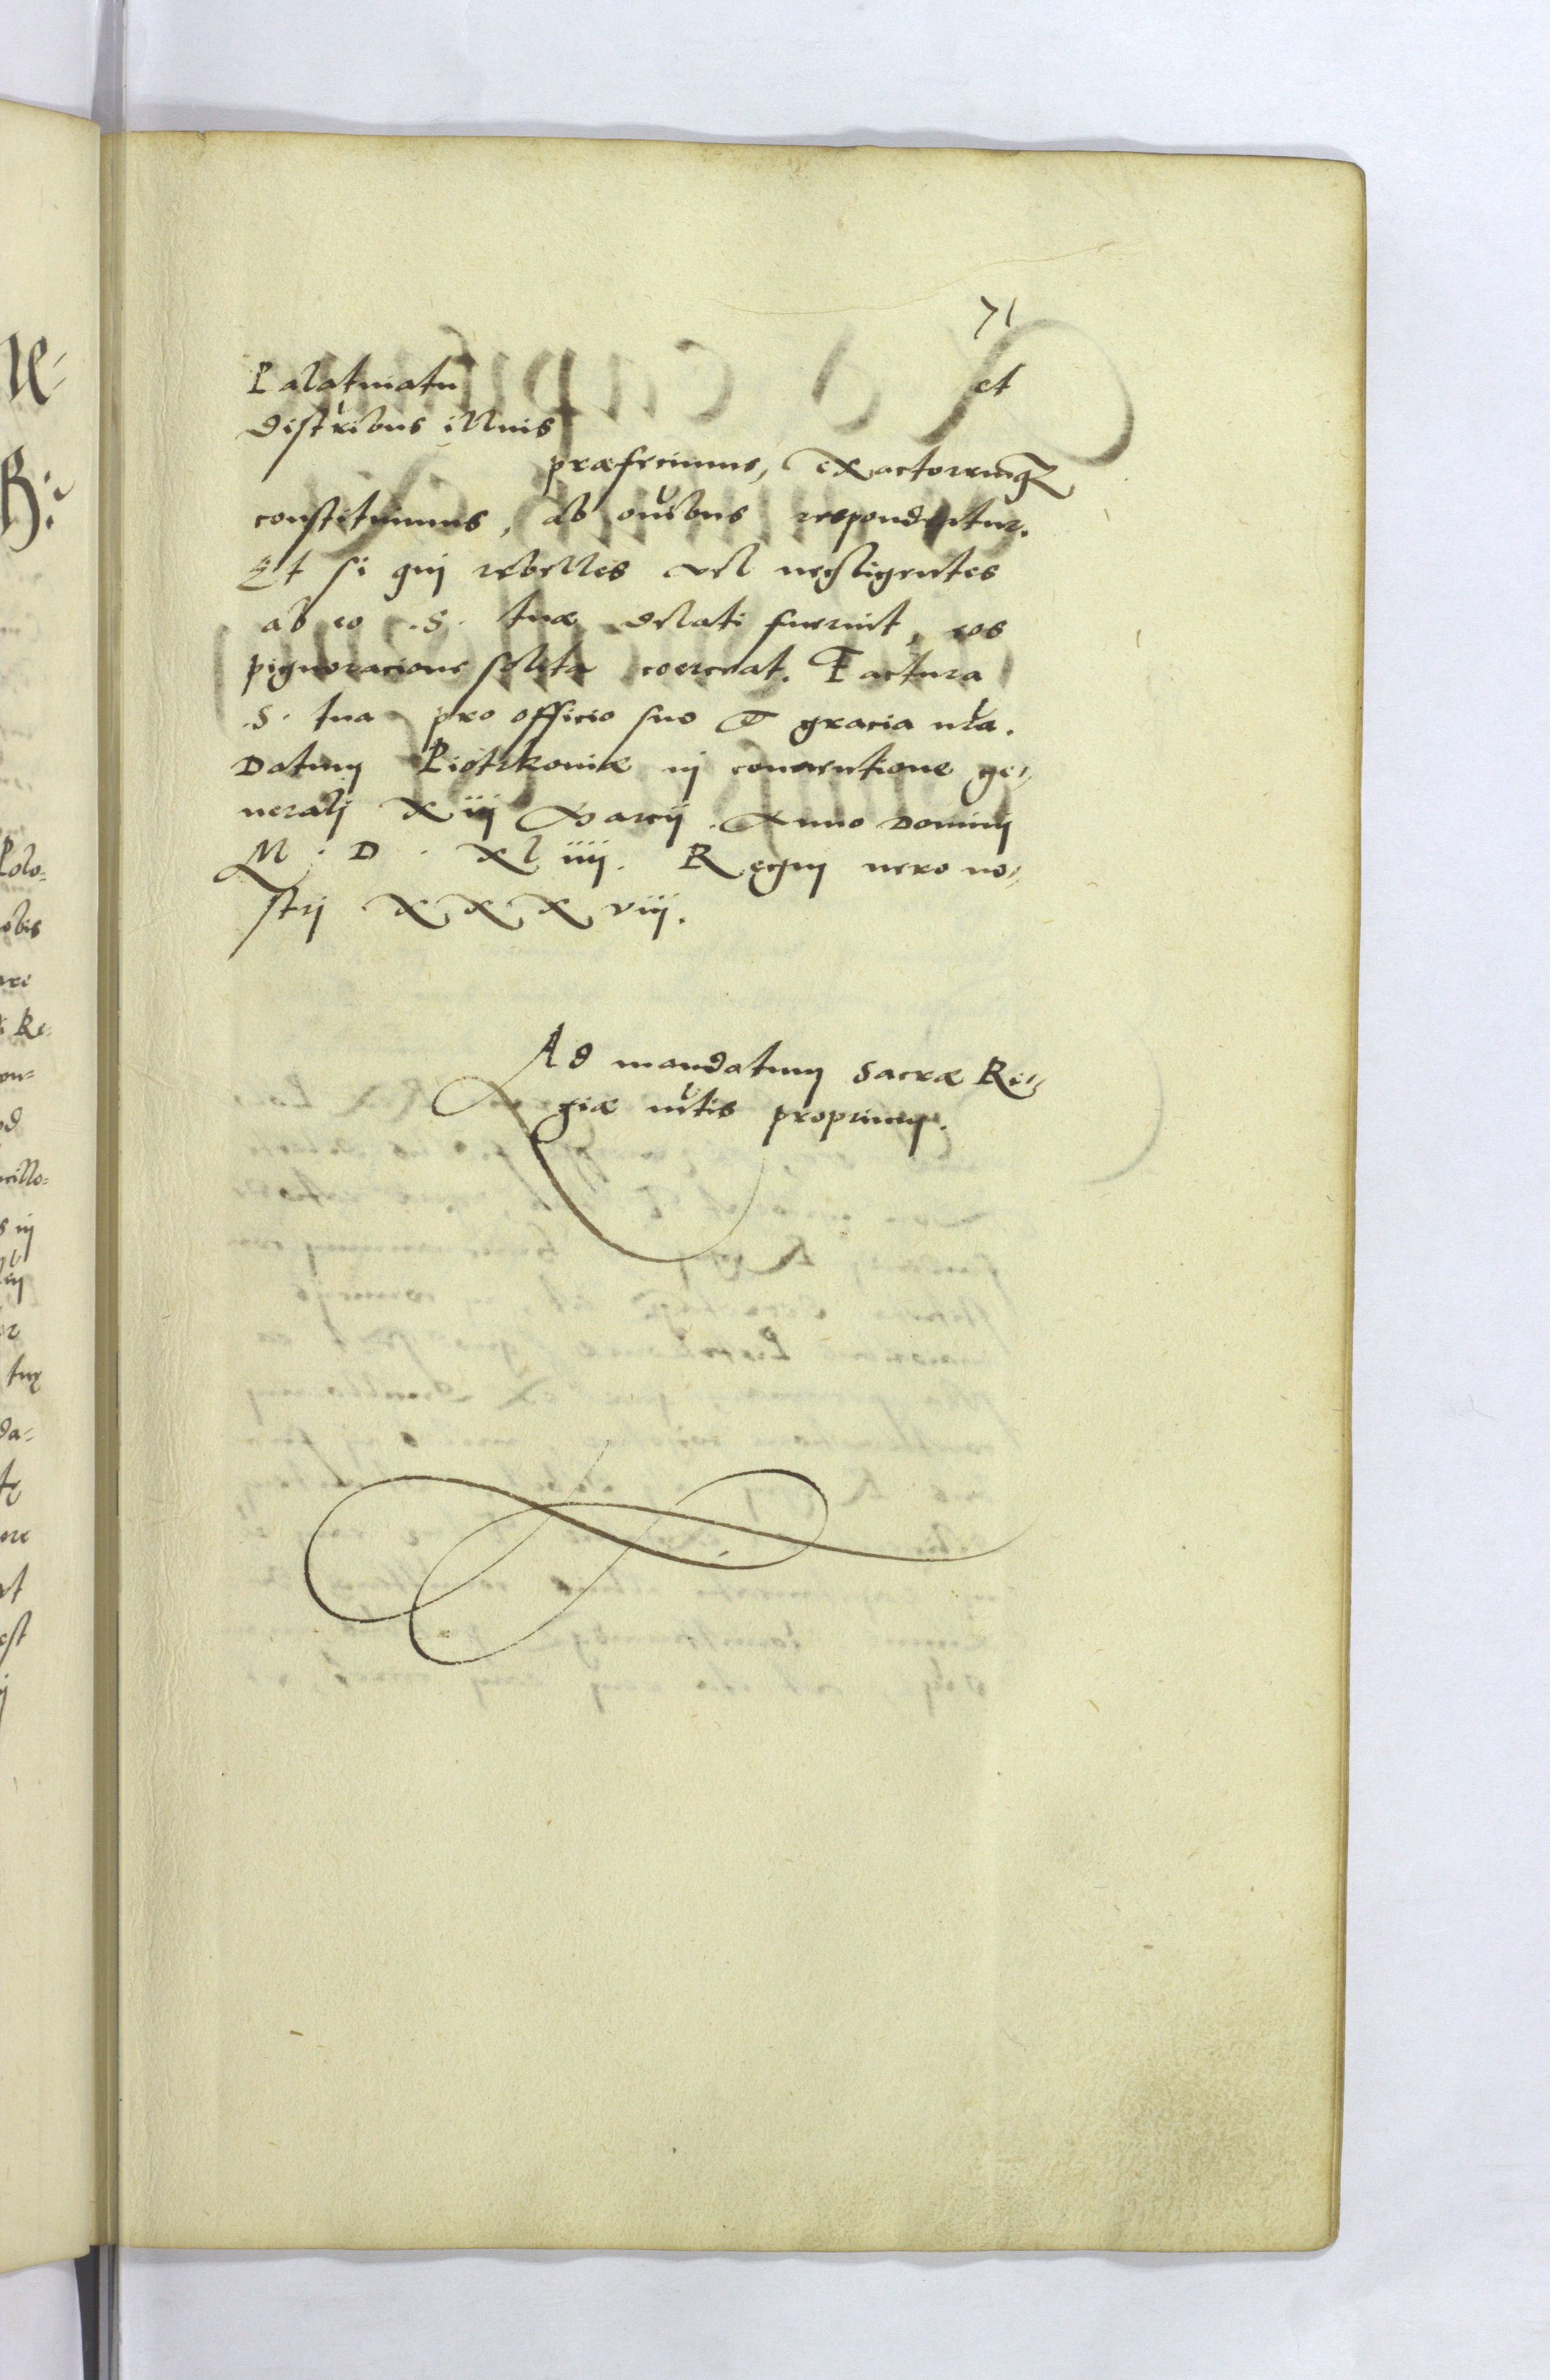 71
Palatinatu et
districtibus illius
præfecimus, exactoremq3
constituimus, ab omibus respondeatur.
Et si qui rebelles vel negligentes
ab eo .S. tuæ delati fuerint, eos
pignoracione solita coerceat. Factura
.S. tua pro officio suo et gracia nra.
Datum Piotrkoviæ in conventione ge⸗
nerali Xiij Marcij. Anno Domini
M. D. XLiiij. Regni vero no⸗
stri XXXviij.
Ad mandatum Sacræ Re⸗
giæ mtis proprium.